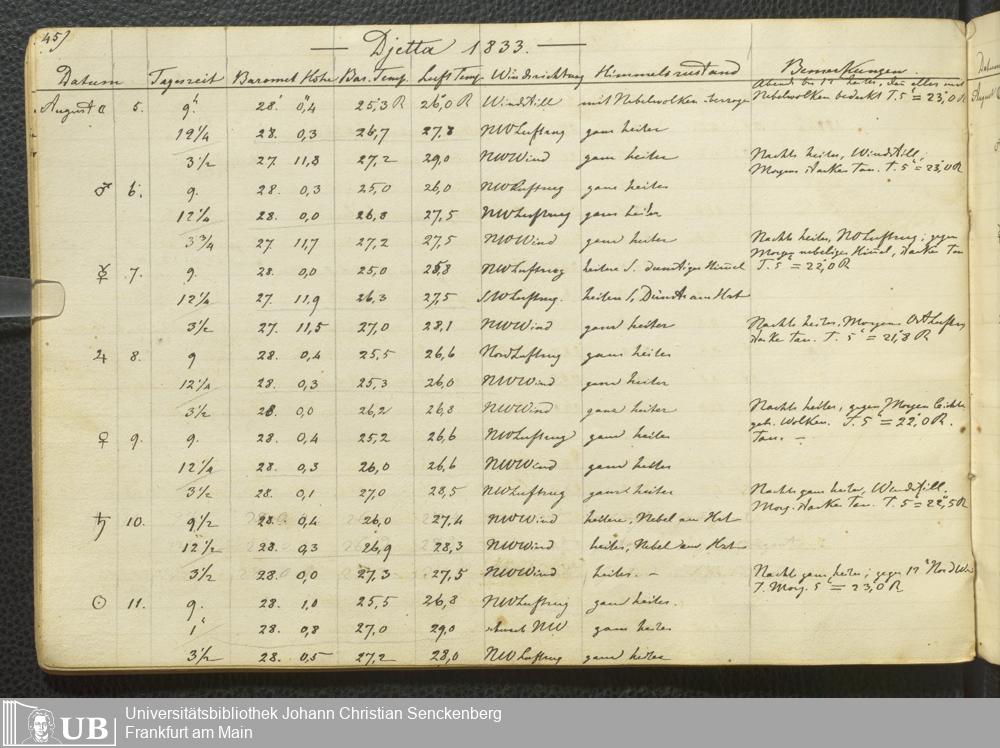 45)
— Djetta 1833. —
Datum Tageszeit Baromet Höhe Bar. Temp. Luft Temp. Windrichtung Himmelszustand Bemerkungen.
Abend bis 11 heiter, dan alles mit
August ☾ 5. 9" 28. 0,4 25,3 R 26,0 R Windstill mit Nebelwolken überzogen Nebelwolken bedeckt T. 5" = 23,0 R
12 1/4 28. 0,3 26,7 27,8 NW Luftzug ganz heiter
3 1/2 27. 11,8 27,2 29,0 NW Wind ganz heiter Nachts heiter, Windstill,
Morgens starker Tau. T. 5" = 23,0 R
♂ 6. 9. 28. 0,3 25,0 26,0 NW Luftzug ganz heiter
12 1/2 28. 0,0 26,8 27,5 NW Luftzug ganz heiter
3 3/4 27. 11,7 27,2 27,5 NW Wind ganz heiter Nachts heiter, NO Luftzug; gegen
Morgen nebeliger Himel, starker Tau
☿ 7. 9. 28. 0,0 25,0 25,8 NW Luftzug heitere S. dunstiger Himel T. 5" = 22,0 R
12 1/2 27. 11,9 26,3 27,5 SW Luftzug. heitere S, Dünste am Hzt
3 1/2 27. 11,5 27,0 28,1 NW Wind ganz heiter Nachts heiter, Morgens Ost Luftzug
starker Tau. T. 5" = 21,8 R
♃ 8. 9 28. 0,4 25,5 26,6 Nord Luftzug ganz heiter
12 1/2 28. 0,3 25,3 26,0 NW Wind ganz heiter
3 1/2 28. 0,0 26,2 26,8 NW Wind ganz heiter Nachts heiter, gegen Morgen leichte
geb. Wolken. T. 5" = 22,0 R.
♀ 9. 9. 28. 0,4 25,2 26,6 NW Luftzug ganz heiter Tau. —
12 1/2 28. 0,3 26,0 26,6 NW Wind ganz heiter
3 1/2 28. 0,1 27,0 28,5 NW Luftzug ganz heiter Nachts ganz heiter, Windstill,
Morg. starker Tau. T. 5" = 22,5 R
♄ 10. 9 1/2 28. 0,4 26,0 27,4 NW Wind heitere, Nebel am Hzt
12 1/2 28. 0,3 26,9 28,3 NW Wind heiter, Nebel am Hzt
3 1/2 28. 0,0 27,3 27,5 NW Wind heiter. — Nachts ganz heiter; gegen 12" Nord Win
T. Morg. 5" = 23,0 R
☉ 11. 9. 28. 1,0 25,5 26,8 NW Luftzug ganz heiter.
1" 28. 0,8 27,0 29,0 schwach NW ganz heiter
3 1/2 28. 0,5 27,2 28,0 NW Luftzug ganz heiter
UB
Universitätsbibliothek Johann Christian Senckenberg
Frankfurt am Main